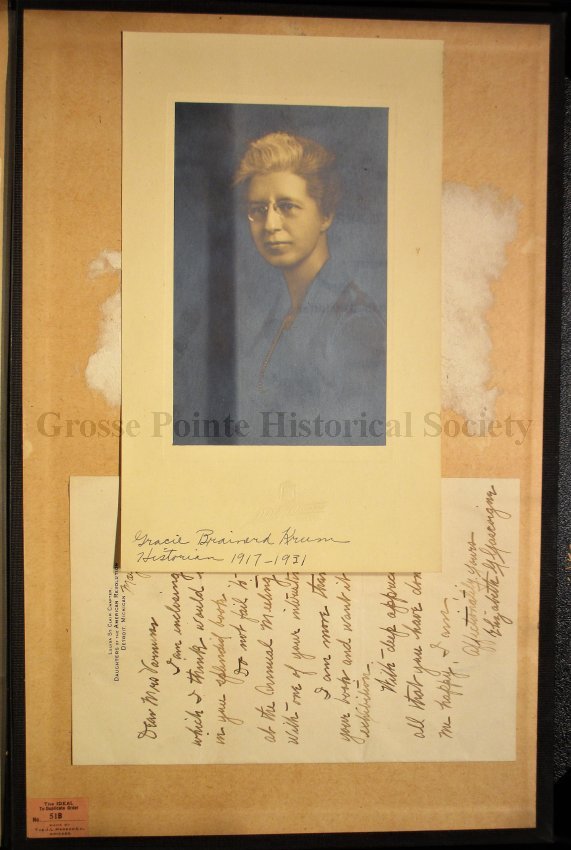 Grosse Pointe Historical Society
Gracie Brainard Krum
Historian 1917-1931
LOUISA ST. CLAIR CHAPTER
DAUGHTERS OF THE AMERICAN REVOLUTION
DETROIT MICHIGAN
Dear Mrs
I am enclosing
which I think would
in your splendid book
Do not fail to
at the Annual Meeting
with one of your
I am more than
your book and want it
exhibition.
With deep appre
all that you have don
me happy, I am
Affectionately yours
Elizabeth
The IDEAL
To Duplicate Order
No. 51B
MADE BY
CHICAGO